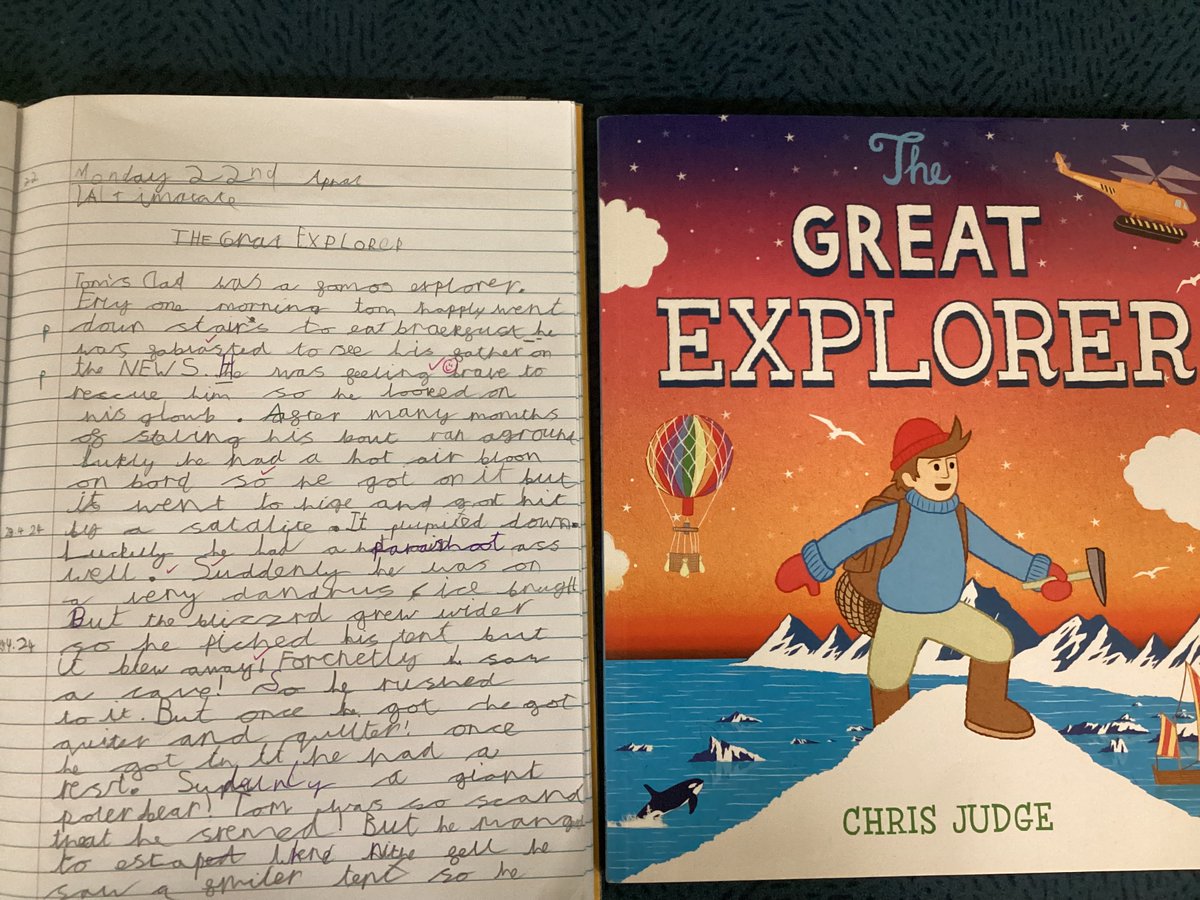 22
Monday 22nd
THE Grat EXPLORER
Tom's Dad was a famos explorer.
Erly one morning tom happly went
p down stair's to eat braekfust he
was gablasted to see his father on
p the NEWS. He was feeling brave to
rescue him so he looked on
his gloub. After many months
of staling his bout ran aground
lukly he had a hot air bloon
on bord so he got on it but
it went to hige and got hit
by a satalite. It pumpited down.
Luckely he had a parashoot ass
well. Suddenly he was on
a very dandrus ice
But the blizzard grew wider
4.24 so he piched his tent but
it blew away! Forchetly he saw
a cave! So he rushed
to it. But once he got he got
quiter and quilter! once
he got in it he had a
rest. a giant
poler bear! Tom was so scard
theat he sremed! But he manged
to escape! he
saw a smiler tent so he
The
GREAT
EXPLORER
CHRIS JUDGE